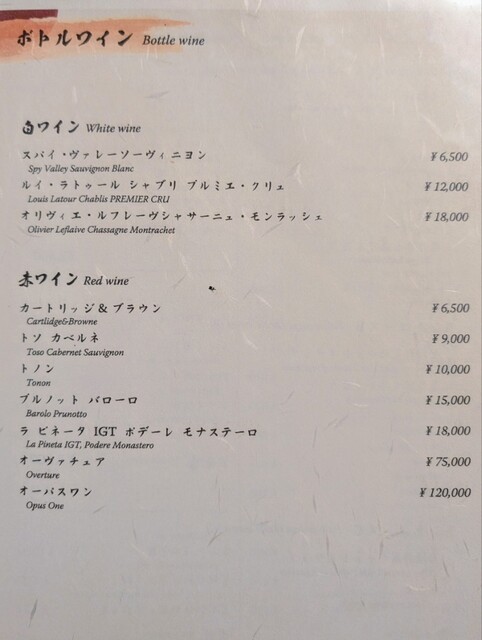 ボトルワイン Bottle wine
白ワイン White wine
スパイ・ヴァレーソーヴィニヨン ¥6,500
Spy Valley Sauvignon Blanc
ルイ・ラトゥール シャブリ プルミエ・クリュ ¥12,000
Louis Latour Chablis PREMIER CRU
オリヴィエ・ルフレーヴシャサーニュ・モンラッシェ ¥18,000
Olivier Leflaive Chassagne Montrachet
赤ワイン Red wine
カートリッジ&ブラウン ¥6,500
Cartlidge&Browne
トソ カベルネ ¥9,000
Toso Cabernet Sauvignon
トノン ¥10,000
Tonon
プルノット バローロ ¥15,000
Barolo Prunotto
ラ ピネータ IGT ポデーレ モナステーロ ¥18,000
La Pineta IGT, Podere Monastero
オーヴァチュア ¥75,000
Overture
オーパスワン ¥120,000
Opus One